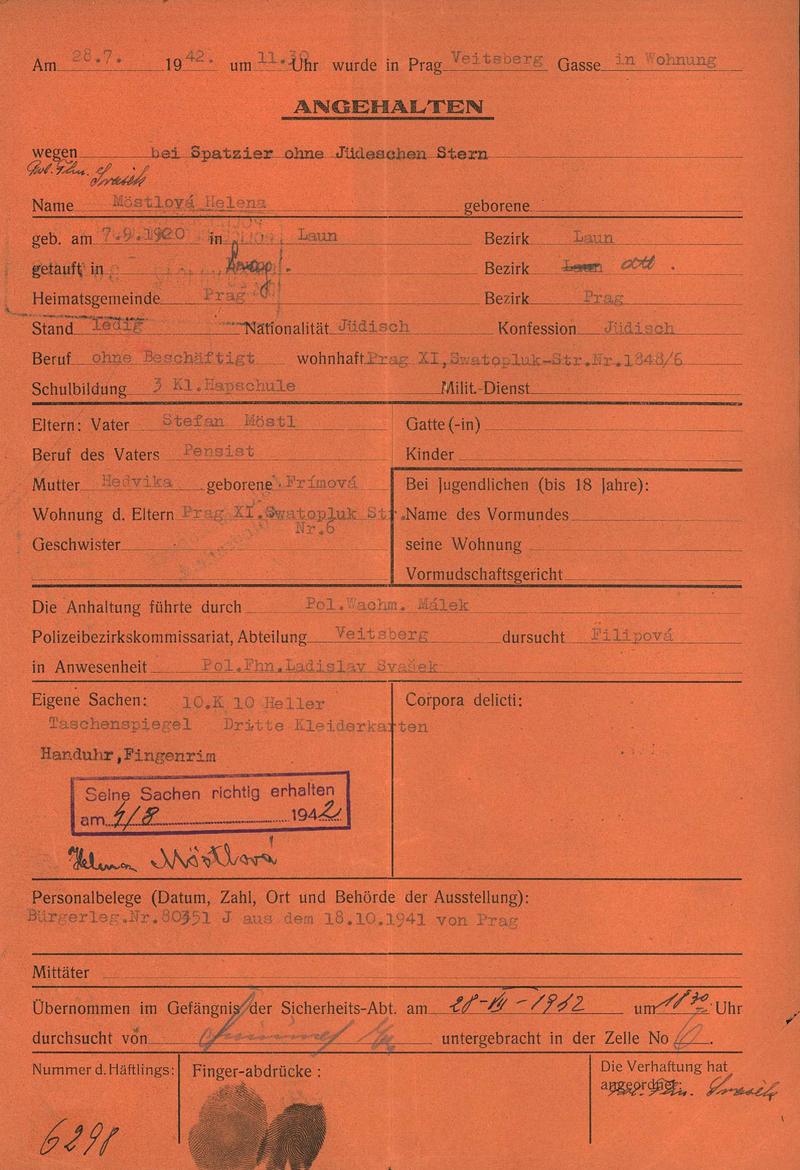 Am 28.7. 1942. um 11.30 Uhr wurde in Prag Veitsberg Gasse in Wohnung
ANGEHALTEN
wegen bei Spatzier ohne Jüdeschen Stern
Name Möstlová Helena geborene
geb. am 7.9.1920 in Laun Bezirk Laun
getauft in Bezirk Laun
Heimatsgemeinde Prag Bezirk Prag
Stand ledig Nationalität Jüdisch Konfession Jüdisch
Beruf ohne Beschäftigt wohnhaft Prag XI,Swatopluk-Str.Nr.1848/6
Schulbildung 3 Kl.Hapschule Milit.-Dienst
Eltern: Vater Stefan Möstl Gatte (-in)
Beruf des Vaters Pensist Kinder
Mutter Hedvika geborene Frímová Bei Jugendlichen (bis 18 Jahre):
Wohnung d. Eltern Prag XI.Swatopluk Str. Name des Vormundes
Nr.6
Geschwister seine Wohnung
Vormudschaftsgericht
Die Anhaltung führte durch Pol.Wachm. Málek
Polizeibezirkskommissariat, Abteilung Veitsberg dursucht Filipová
in Anwesenheit Pol.Fhn.Ladislav Svašek
Eigene Sachen: 10.K 10 Heller Corpora delicti:
Taschenspiegel Dritte Kleiderkarten
Handuhr,Fingenrim
Seine Sachen richtig erhalten
am 1/8 1942
Helena Möstlová
Personalbelege (Datum, Zahl, Ort und Behörde der Ausstellung):
Bürgerleg.Nr.80351 J aus dem 18.10.1941 von Prag
Mittäter
Übernommen im Gefängnis der Sicherheits-Abt. am 28-VII-1942 um 18 30 Uhr
durchsucht von untergebracht in der Zelle No 6.
Nummer d. Häftlings: Finger-abdrücke : Die Verhaftung hat
angeordnet:
6298